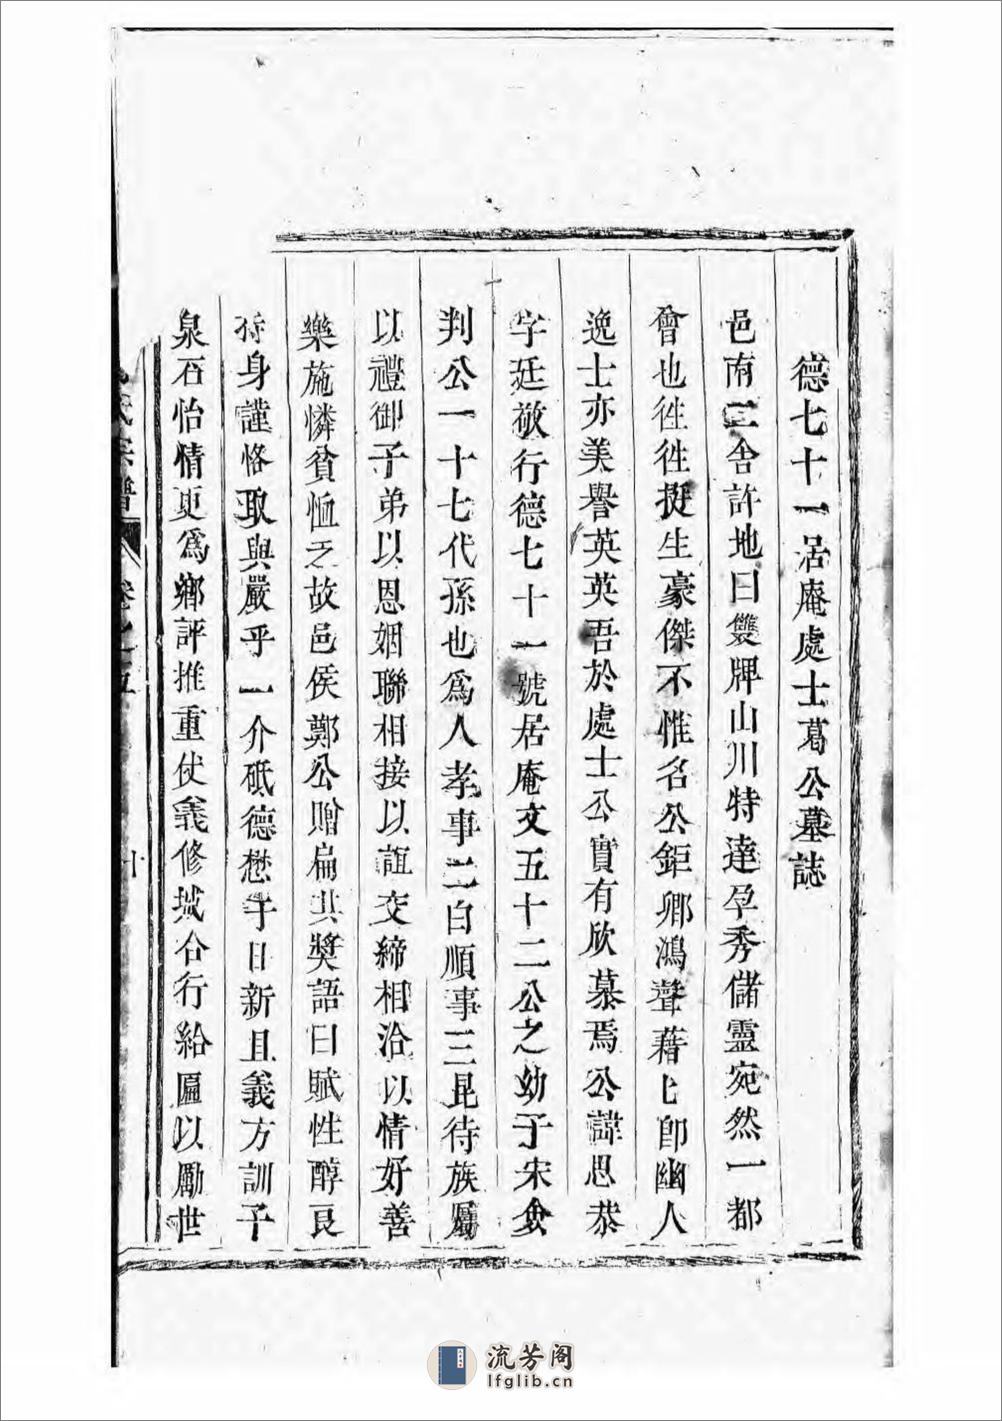 德七十一居庵處士葛公墓誌
邑南二舍許地曰雙牌山川特達孕秀儲靈宛然一都
會也徃徃挺生豪傑不惟名公鉅卿鴻聲藉匕卽幽人
逸士亦美譽英英吾於處士公實有欣慕焉公諱思恭
字廷敬行德七十一號居庵文五十二公之幼子宋僉
判公一十七代孫也爲人孝事二白順事三昆待族屬
以禮御子弟以恩姻聯相接以誼交締相洽以情好善
樂施憐貧恤乏故邑侯鄭公贈扁其奬語曰賦性醇良
持身謹恪取與嚴乎一介砥德懋于日新且義方訓子
泉石怡情更爲鄉評推重仗義修城合行給匾以勵世
氏宗譜 卷之五
流芳阁
lfglib.cn